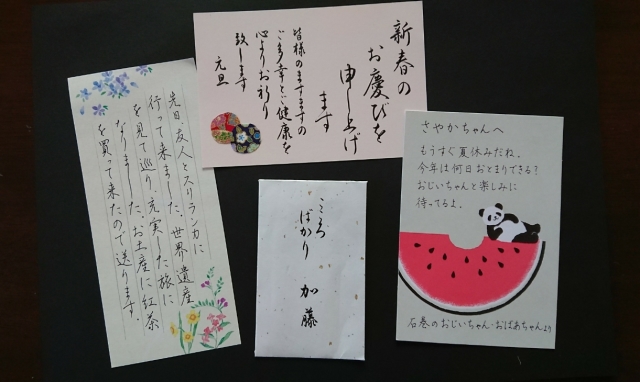 新春の
お慶びを
申し上げ
ます
皆様のますますの
ご多幸とご健康を
心よりお祈り
致します
元旦
先日、友人とスリランカに
行って来ました。世界遺産
を見て巡り、充実した旅に
なりました。お土産に紅茶
を買って来たので送ります
こころ
ばかり
加藤
さやかちゃんへ
もうすぐ夏休みだね。
今年は何日おとまりできる?
おじいちゃんと楽しみに
待ってるよ。
石巻のおじいちゃん・おばあちゃんより